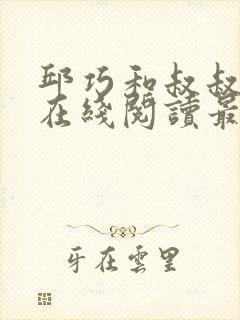 邱巧和叔叔
在綫閱讀最
牙在雲里